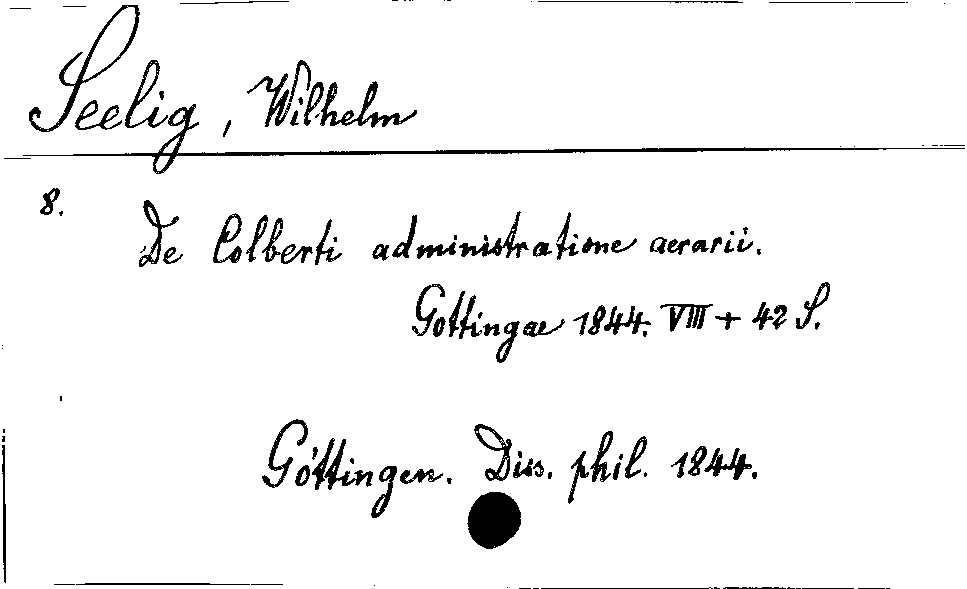 Seelig, Wilhelm
8.
De Colberti administratione aerarii.
Gottingae 1844. VIII + 42 S.
Göttingen. Diss. phil. 1844.